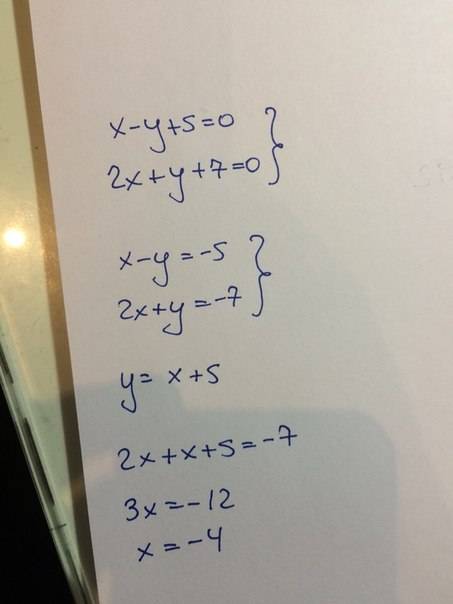 x-y+5=0 }
2x+y+7=0
x-y=-5 }
2x+y=-7
y= x+5
2x+x+5=-7
3x=-12
x=-4